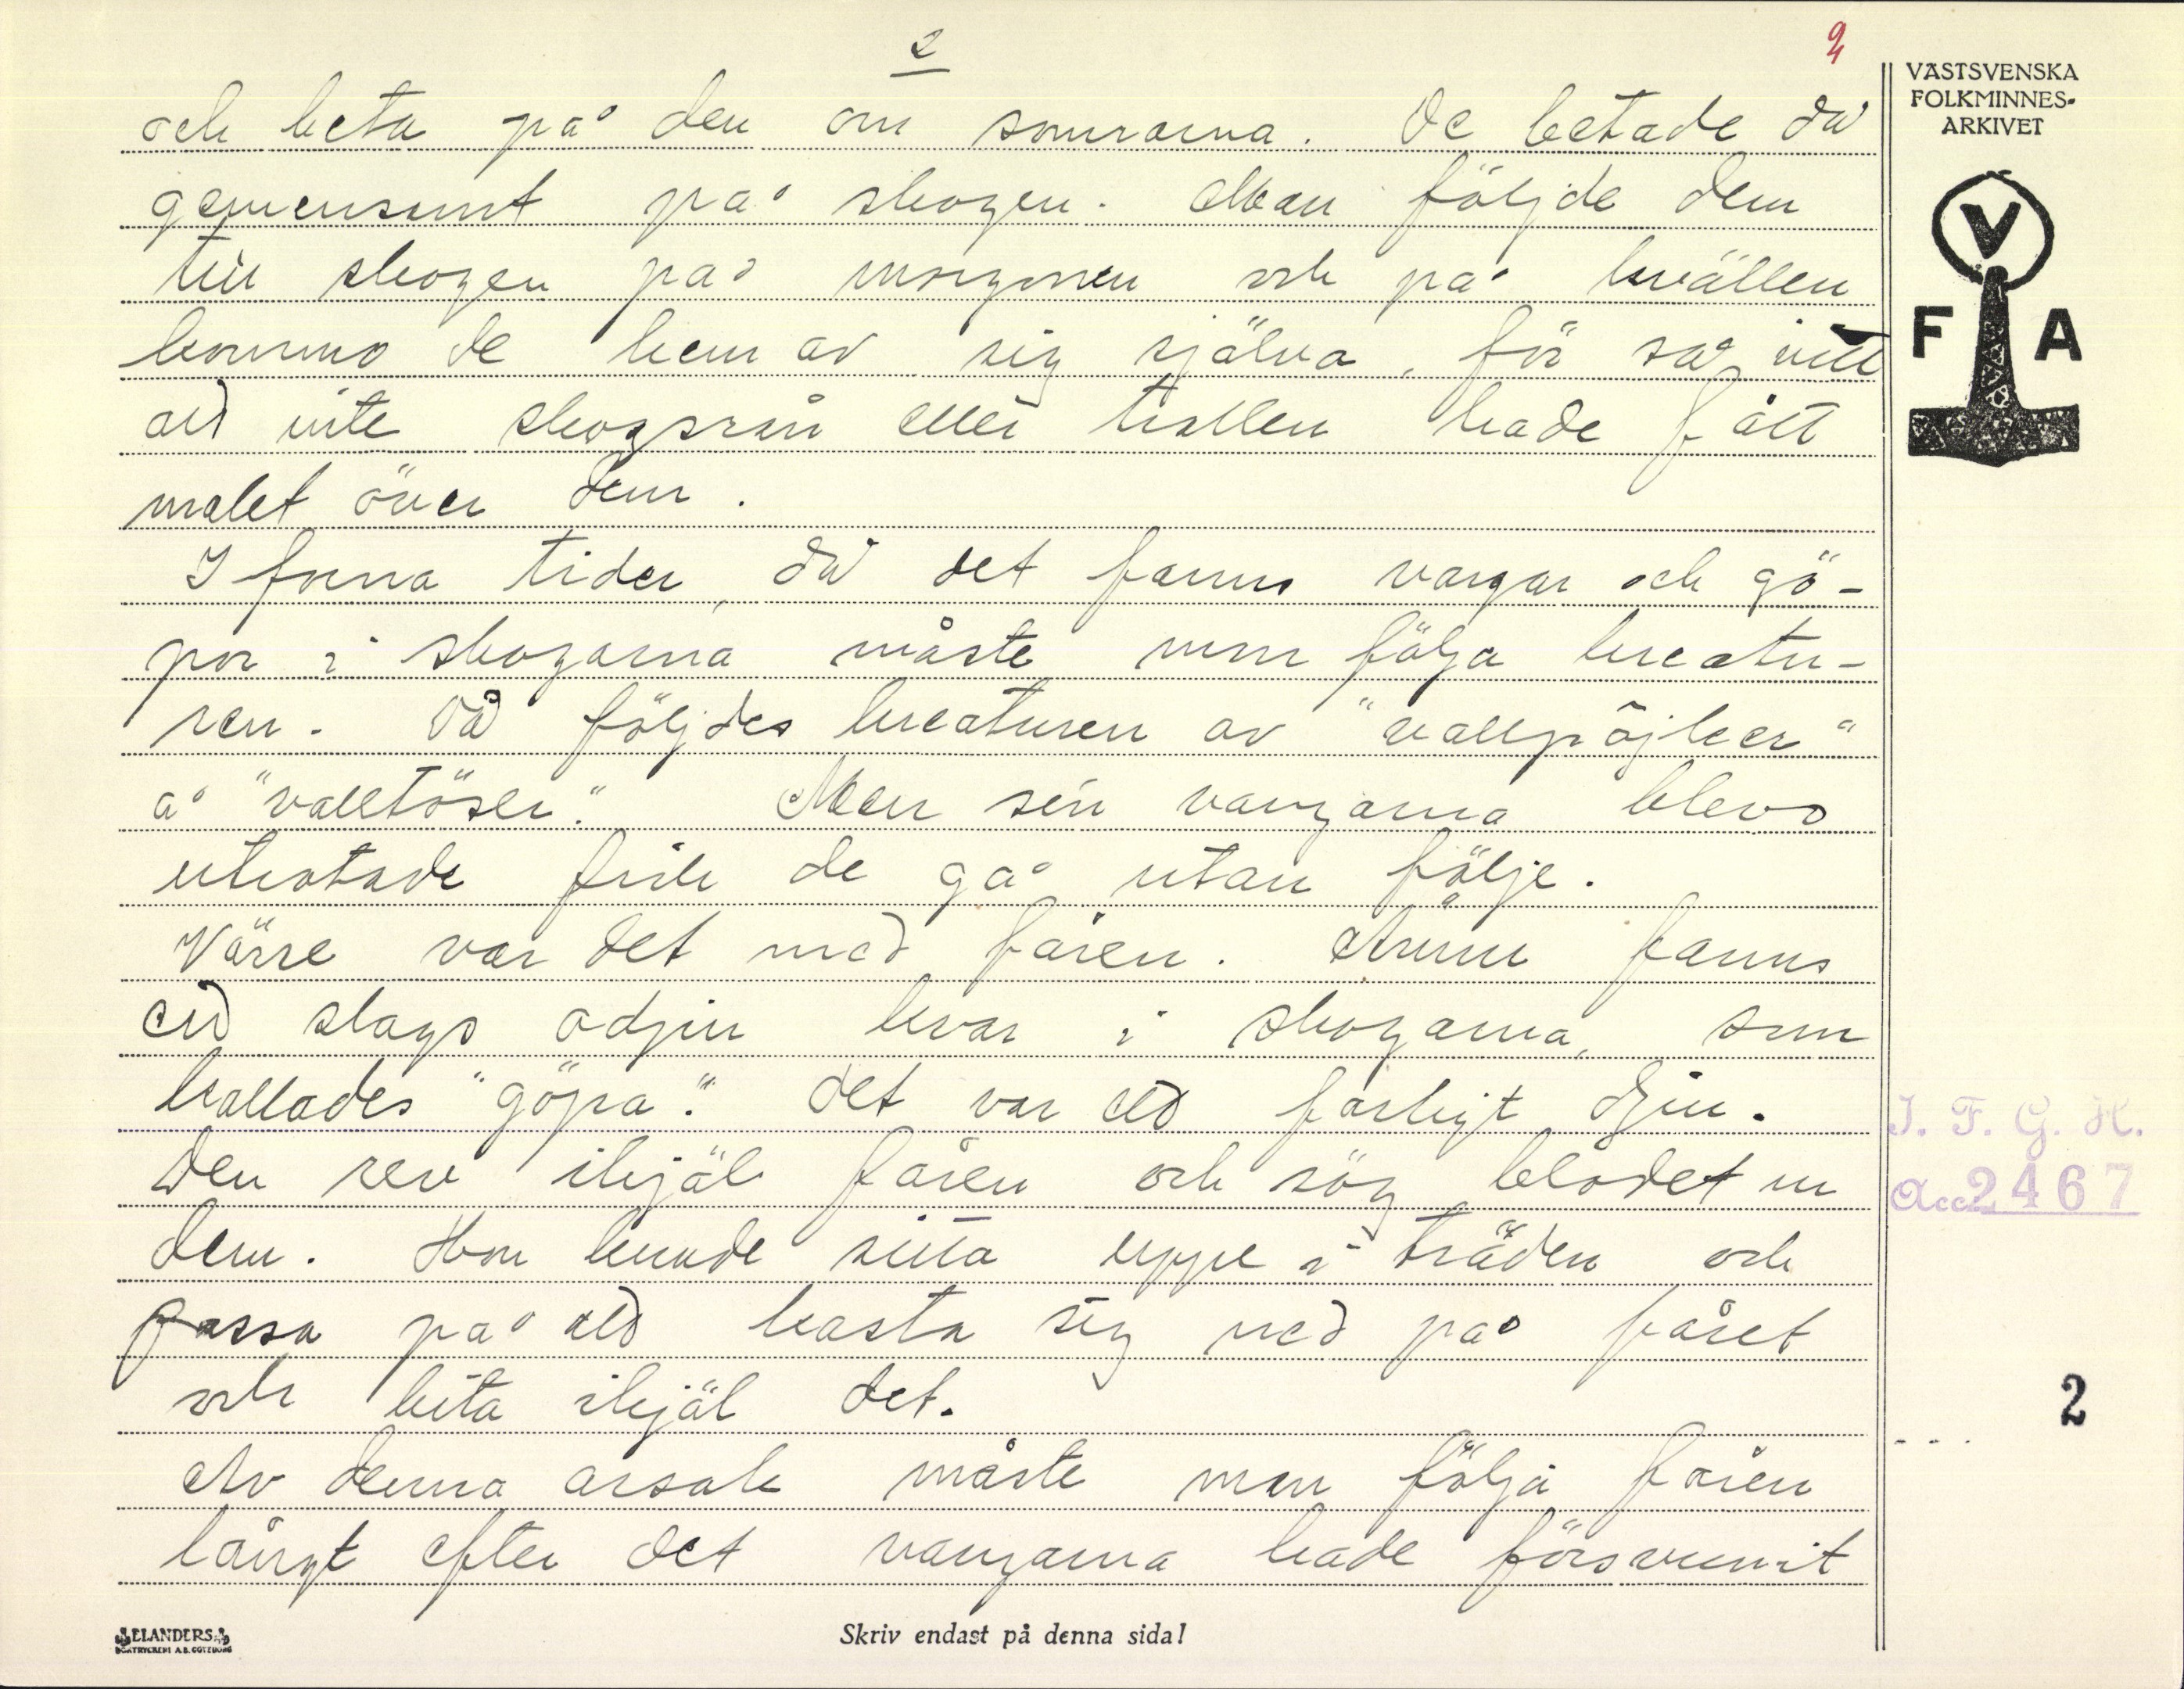 2
2
VÄSTSVENSKA
FOLKMINNES-
ARKIVET
V
F A
och beta på den om somrarna. De betade då
gemensamt på skogen. Man följde dem
till skogen på morgonen och på kvällen
kommo de hem av sig själva, för så vitt
att inte skogsrån eller trollen hade fått
makt över dem.
I forna tider, då det fanns vargar och gö-
por i skogarna måste man följa kreatu-
ren. Då följdes kreaturen av "vallpöjker"
å "valltöser." Men sen vargarna blevo
utrotade fick de gå utan följe.
Värre var det med fåren. Ännu fanns
ett slags odjur kvar i skogarna, som
kallades "göpa." Det var ett farligt djur.
Den rev ihjäl fåren och sög blodet ur
dem. Hon kunde sitta uppe i träden och
passa på att kasta sig ned på fåret
och bita ihjäl det.
Av denna orsak måste man följa fåren
långt efter det vargarna hade försvunnit
I. F. G. H.
Acc. 2467
2
ELANDERS
BOKTRYCKERI A.B. GÖTEBORG
Skriv endast på denna sida!